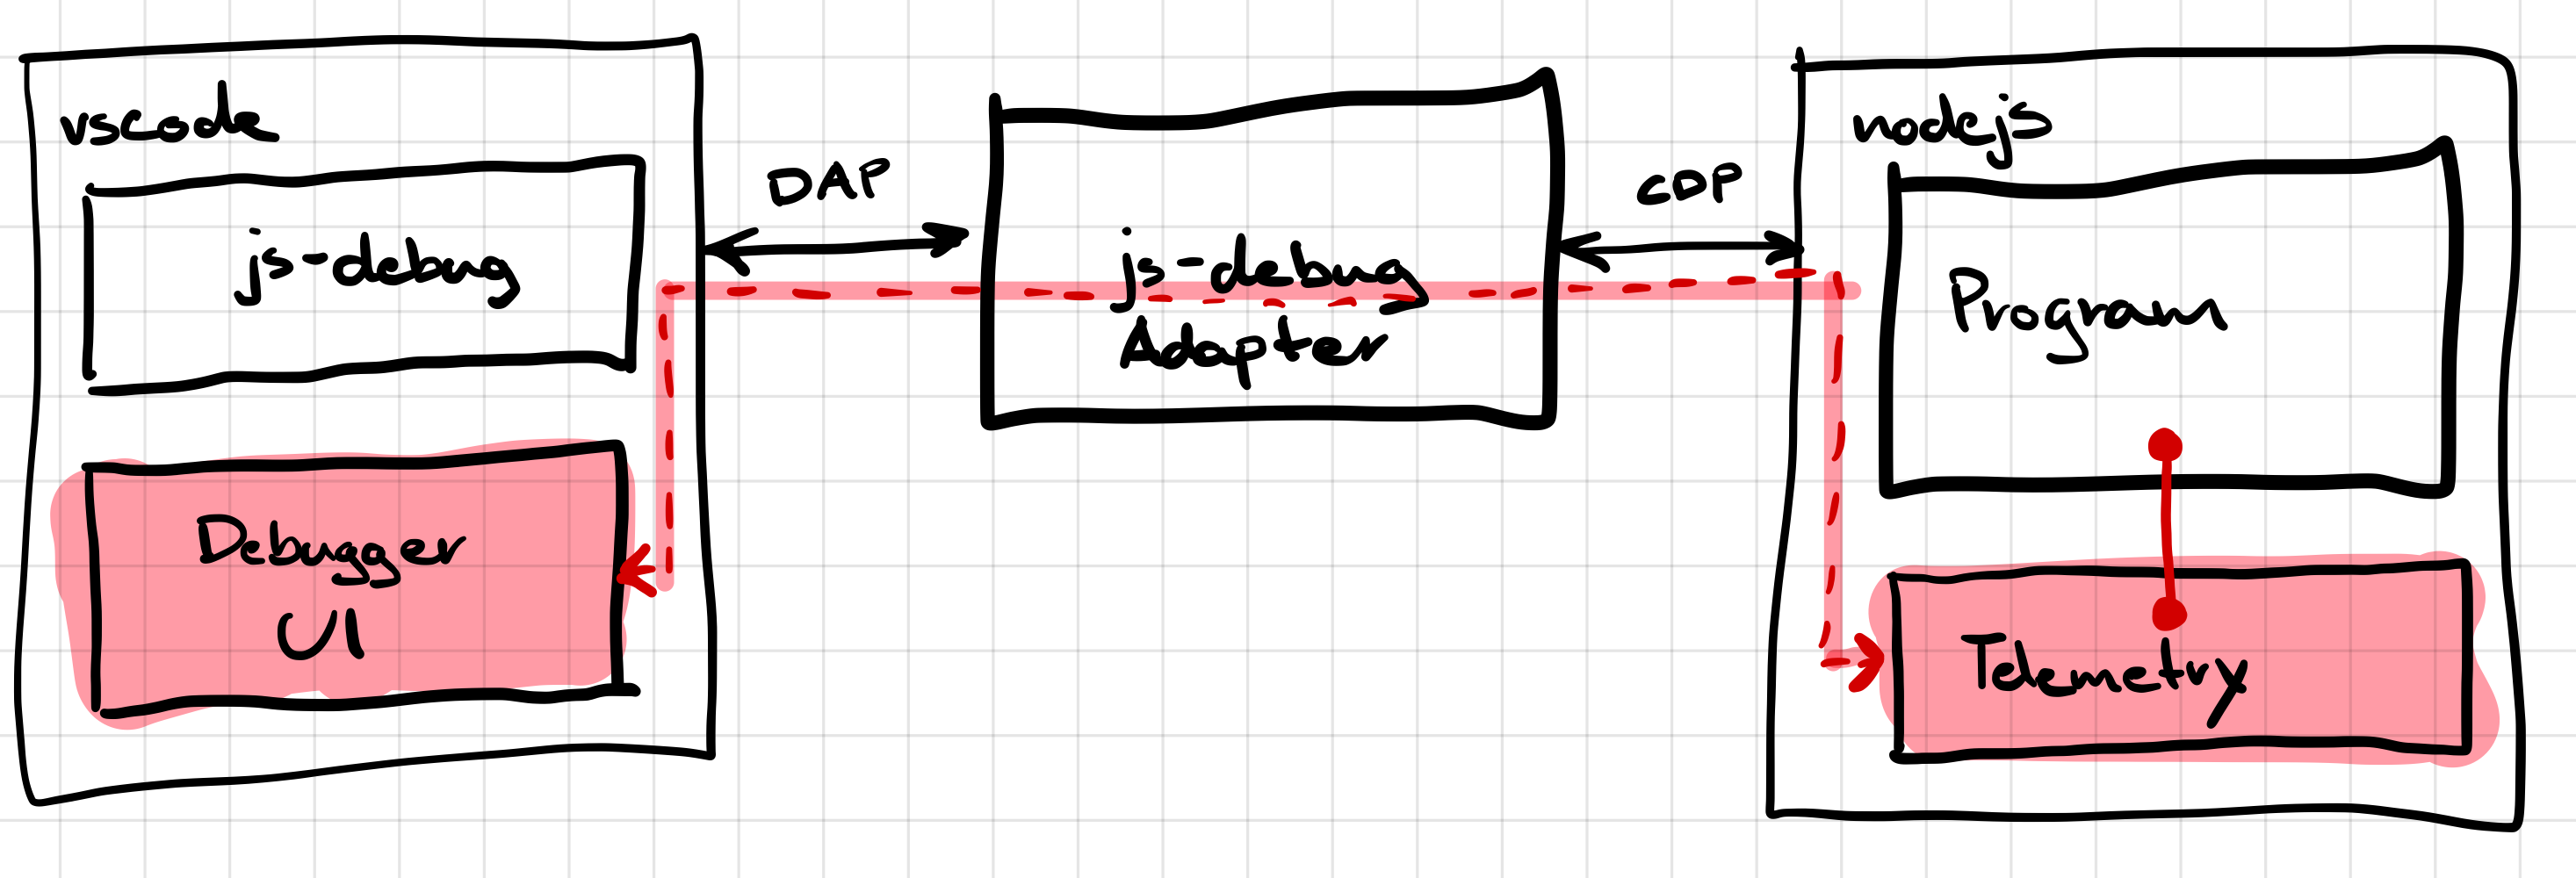 vscode
js-debug
Debugger
UI
DAP
js-debug
Adapter
CDP
nodejs
Program
Telemetry